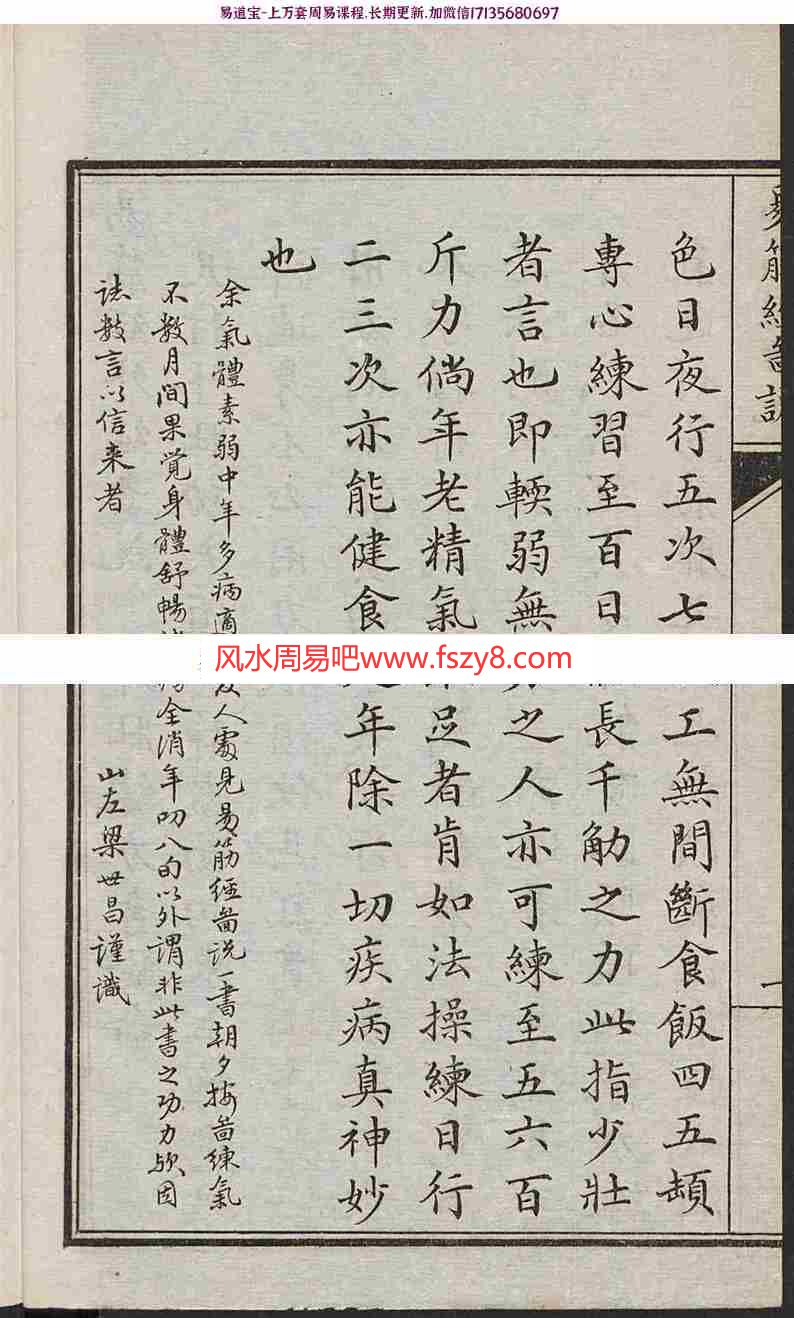 易道宝-上万套周易课程,长期更新,加微信17135680697
易筋經啚説
一
色日夜行五次七工無間斷食飯四五頓
專心練習至百日長千觔之力此指少壯
者言也即輭弱無之人亦可練至五六百
斤力倘年老精氣足者肯如法操練日行
二三次亦能健食年除一切疾病真神妙
也
余氣體素弱中年多病適友人處見易筋經啚説一書朝夕按啚練氣
不數月間果覺身體舒暢全消年叨八旬以外謂非此書之功力歟因
誌數言以信来者
山左梁世昌謹識
风水周易吧www.fszy8.com